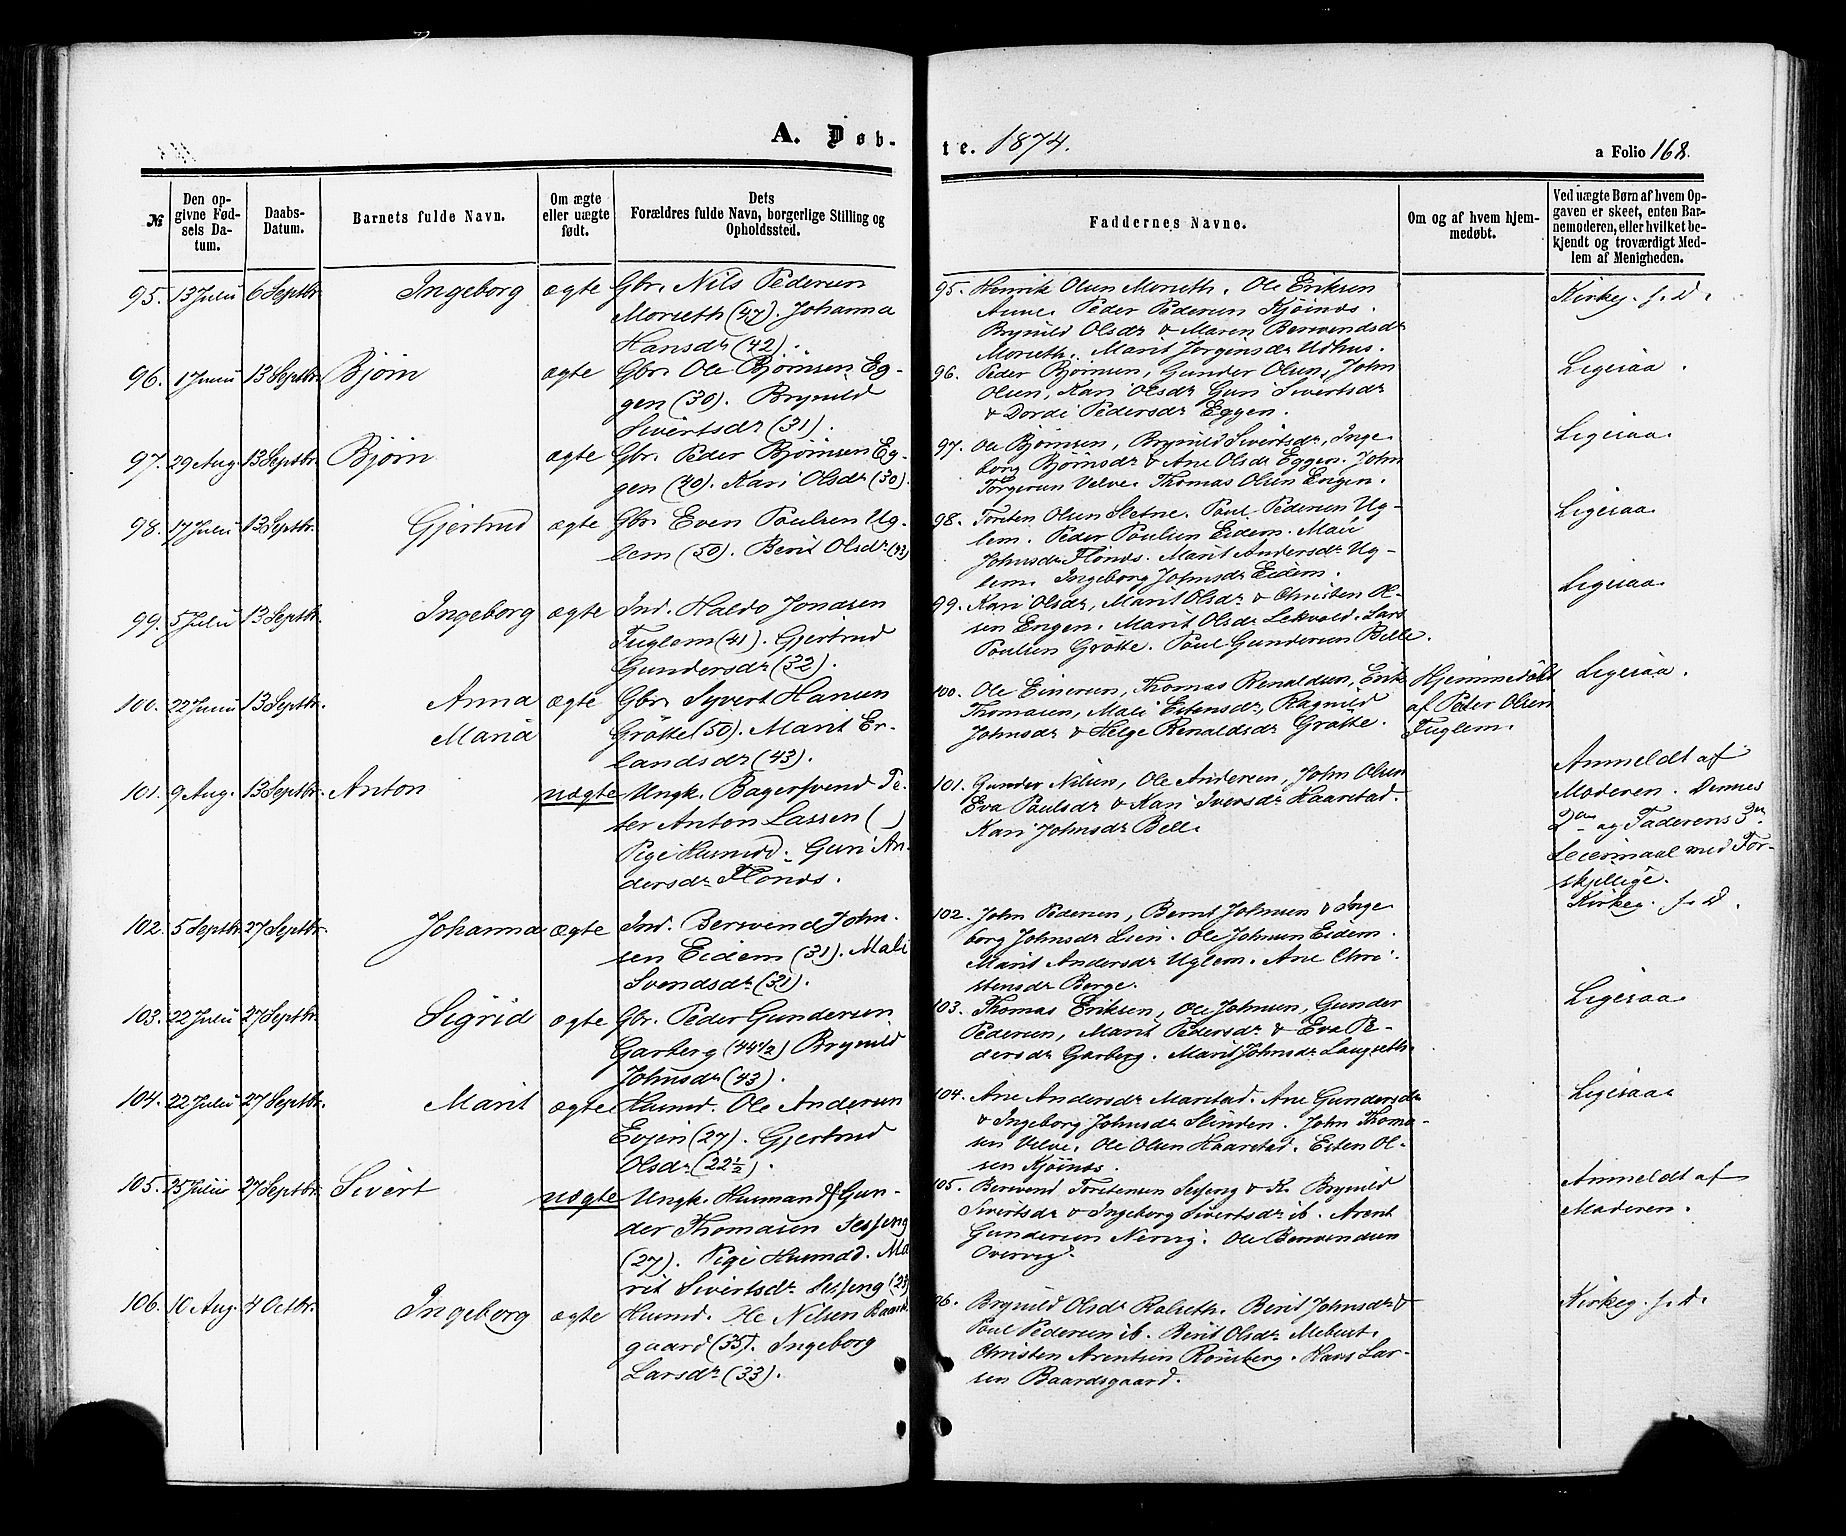 A. Døb-
te. 1874.
a Folio 168.
№
Den op-
givne Fød-
sels Da-
tum.
Daabs-
Datum.
Barnets fulde Navn.
Om ægte
eller uægte
født.
Dets
Forældres fulde Navn, borgerlige Stilling og
Opholdssted.
Faddernes Navne.
Om og af hvem hjem-
medøbt.
Ved uægte Børn af hvem Op-
gaven er skeet, enten Bar-
nemoderen, eller hvilket be-
kjendt og troværdigt Med-
lem af Menigheden.
95. 13 Julii 6 Septbr. Ingeborg ægte Gbr. Nils Pedersen
Morseth (47). Johanna
Hansdr (42).
95. Henrik Olsen Morseth. Ole Eriksen
Aune. Peder Pedersen Kjøinds.
Brynild Olsdr & Maren Bersvendsdr
Morseth. Marit Jørgensdr Udhus.
Kirkeg. f. D.
96. 1 Junii 13 Septbr. Bjørn ægte Gbr. Ole Bjørnsen Eg-
gen (30). Brynild
Sivertsdr (31).
96. Peder Bjørnsen, Gunder Olsen, John
Olsen, Kari Olsdr Guri Sivertsdr
& Dordi Pedersdr Eggen.
Ligesaa.
97. 29 Aug. 13 Septbr. Bjørn ægte Gbr. Peder Bjørnsen Eg-
gen (40). Kari Olsdr (30).
97. Ole Bjørnsen, Brynild Sivertsdr, Inge-
borg Bjørnsdr & Ane Olsdr Eggen. John
Torgersen Velve. Thomas Olsen Engen.
Ligesaa.
98. 17 Julii 13 Septbr. Gjertrud ægte Gbr. Even Paulsen Ug-
lem (50). Berit Olsdr
98. Torsten Olsen Sletne. Paul Pedersen Ug-
lem. Peder Paulsen Eidem. Mali
Johnsdr Flønds. Marit Andersdr Ug-
lem. Ingeborg Johnsdr Eidem.
Ligesaa
99. 5 Julii 13 Septbr. Ingeborg ægte Ind. Haldo Jonasen
Fuglem (41). Gjertrud
Gundersdr (32).
99. Kari Olsdr, Marit Olsdr & Christen Ol-
sen Engen. Marit Olsdr Lekvold. Lars
Paulsen Grøtte. Paul Gundersen Belle.
Ligesaa
100. 22 Junii 13 Septbr. Anna
Maria
ægte Gbr. Syvert Hansen
Grøtte (50). Marit Er-
landsdr (43).
100. Ole Einersen, Thomas Renaldsen, Erik
Thomasen, Mali Estensdr, Ragnild
Johnsdr & Helge Renaldsdr Grøtte.
Hjemmedøbt
af Peter Olsen
Fuglem.
Ligesaa.
101. 9 Aug. 13 Septbr. Anton uægte Ungk. Bagersvend Pe-
ter Anton Lassen ( )
Pige Husmdd. Guri An-
dersdr Flønds.
101. Gunder Nilsen, Ole Andersen, John Olsen
Eva Paulsdr & Kari Iversdr Haarstad.
Kari Johnsdr Bell.
Anmeldt af
Moderen. Dennes
2det og Faderens 3die
Leiermaal med For-
skjellige.
102. 5 Septbr. 27 Septbr. Johanna ægte Ind. Bersvend John-
sen Eidem (31). Mali
Svendsdr (31).
102. John Pedersen, Bernt Johnsen & Inge-
borg Johnsdr Lien. Ole Johnsen Eidem.
Marit Andersdr Uglem. Ane Chri-
stensdr Berge.
Kirkeg. f. D.
103. 22 Julii 27 Septbr. Sigrid ægte Gbr. Peder Gundersen
Garberg (44 1/2) Brynild
Johnsdr (43).
103. Thomas Eriksen, Ole Johnsen, Gunder
Pedersen, Marit Pedersdr & Eva Pe-
dersdr Garberg. Marit Johnsdr Langseth.
Ligesaa
104. 22 Julii 27 Septbr. Marit ægte Husmd. Ole Andersen
Evjen (27). Gjertrud
Olsdr (22 1/2).
104. Ane Andersdr Marstad. Ane Gundersdr
& Ingeborg Johnsdr Slinden. John Thoma-
sen Velve. Ole Olsen Haarstad. Esten Ol-
sen Kjøinds.
Ligesaa
105. 25 Julii 27 Septbr. Sivert uægte Ungk. Husmand Gun-
der Thomasen Sesseng
(27). Pige Husmdd. Ma-
rit Sivertsdr Sesseng
105. Bersvend Torstensen Sesseng & K. Brynild
Sivertsdr & Ingeborg Sivertsdr ib. Arent
Gundersen Nervig. Ole Bersvendsen
Overvig.
Anmeldt af
Moderen.
106. 10 Aug. 4 Octbr. Ingeborg ægte Husmd. Ole Nilsen Baards-
gaard (35). Ingeborg
Larsdr (33).
06. Brynild Olsdr Rolseth. Berit Johnsdr &
Paul Pedersen ib. Berit Olsdr Mebust.
Christen Arentsen Rønsberg. Hans Lar-
sen Baardsgaard.
Kirkeg. f. D.